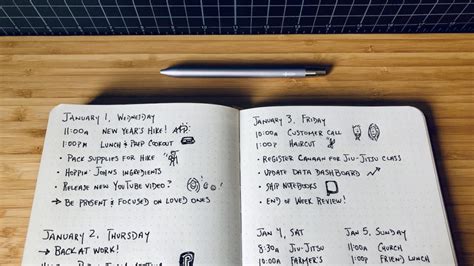 JANUARY 1, WEDNESDAY
11:00A NEW YEAR'S HIKE!
1:00PM LUNCH & PREP COOKOUT
• PACK SUPPLIES FOR HIKE
• HOPPIN' JOHN'S INGREDIENTS
• RELEASE NEW YOUTUBE VIDEO?
→ BE PRESENT & FOCUSED ON LOVED ONES
JANUARY 2, THURSDAY
→ BACK AT WORK!
JANUARY 3, FRIDAY
10:00A CUSTOMER CALL
1:00P HAIRCUT
• REGISTER CANAAN FOR JIU-JITSU CLASS
• UPDATE DATA DASHBOARD
• SHIP NOTEBOOKS
• END OF WEEK REVIEW!
JAN 4, SAT
8:30A JIU-JITSU
10:00A FARMER'S
JAN 5, SUNDAY
11:00A CHURCH
1:00P FRIEND LUNCH